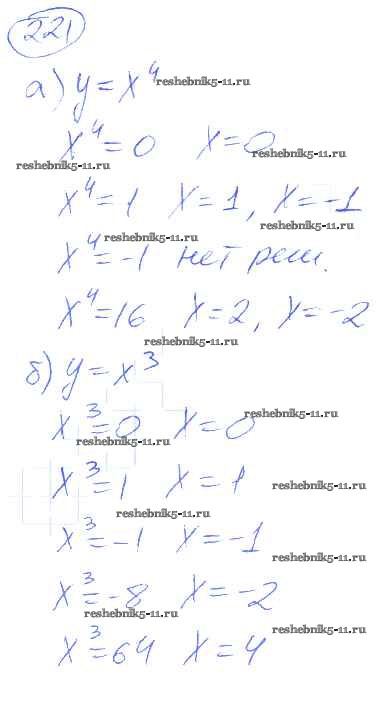 221
а) y = x⁴
reshebnik5-11.ru
x⁴ = 0 x = 0
reshebnik5-11.ru
reshebnik5-11.ru
x⁴ = 1 x = 1, x = -1
reshebnik5-11.ru
reshebnik5-11.ru
x⁴ = -1 нет реш.
x⁴ = 16 x = 2, x = -2
reshebnik5-11.ru
б) y = x³
x³ = 0 x = 0
reshebnik5-11.ru
reshebnik5-11.ru
x³ = 1 x = 1
reshebnik5-11.ru
reshebnik5-11.ru
x³ = -1 x = -1
reshebnik5-11.ru
x³ = -8 x = -2
reshebnik5-11.ru
reshebnik5-11.ru
x³ = 64 x = 4